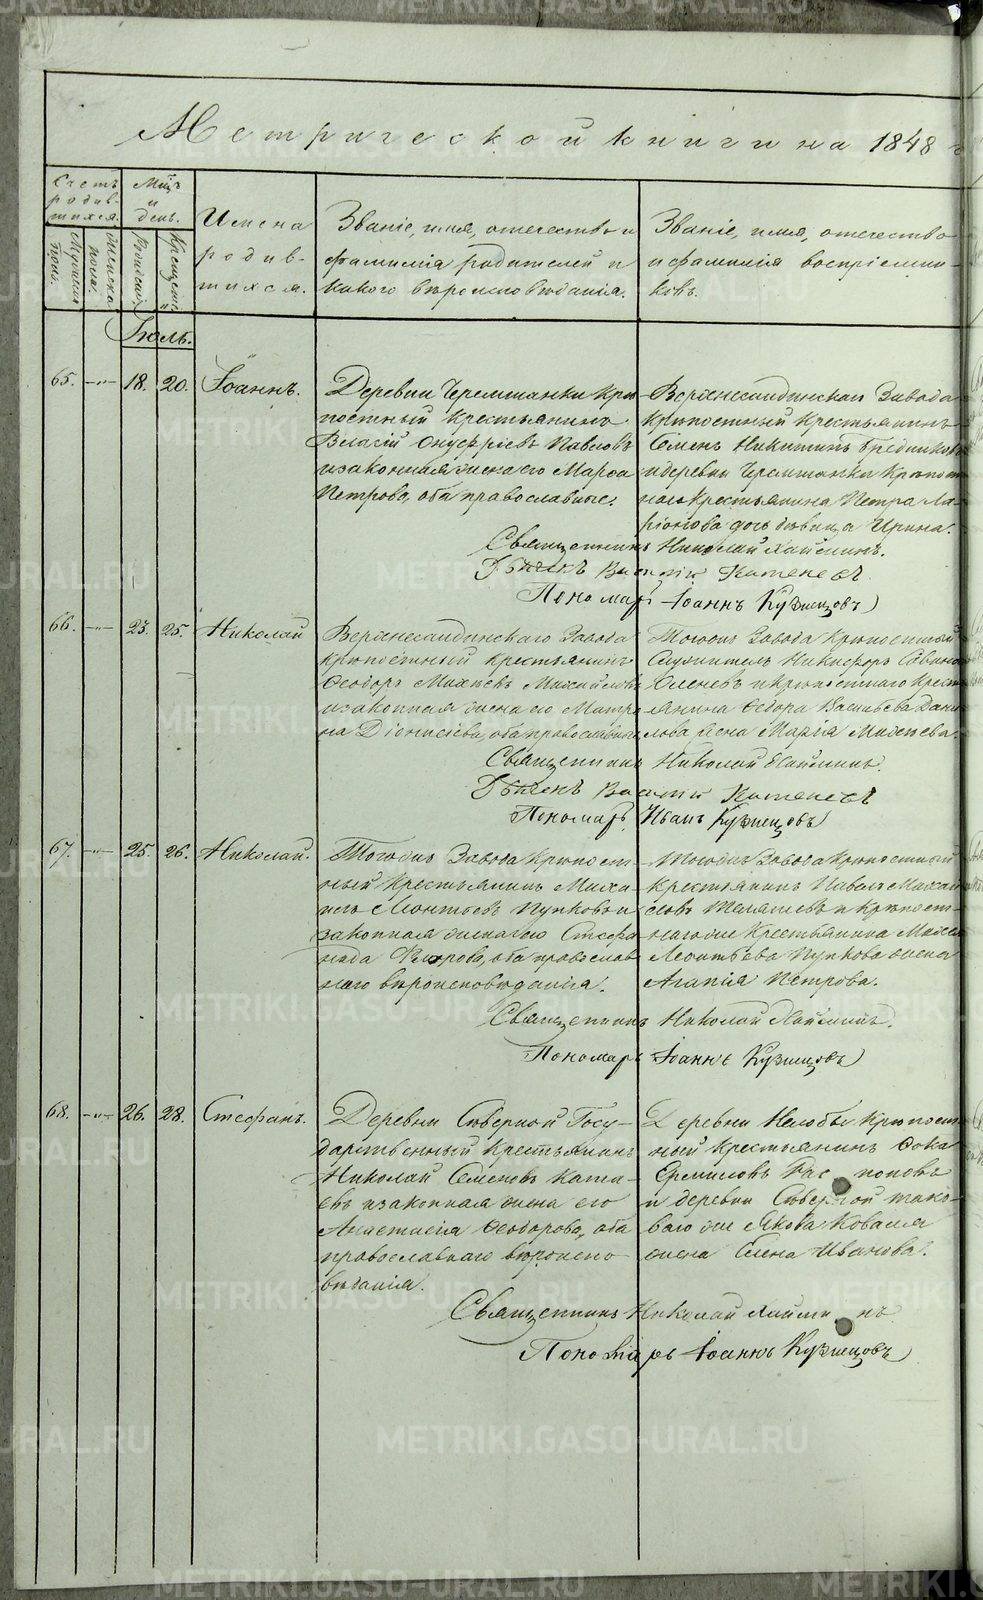 Метрической книги на 1848
Счетъ родив-
шихся.
Мужеска
полу.
Женска
пола.
Мѣц.
и
день.
Рожденія
Крещенія
Имена
родив-
шихся.
Званіе, имя, отечество и
фамилія родителей и
какого вѣроисповѣданія.
Званіе, имя, отечество
и фамилія воспріемни-
ковъ.
Іюль.
65. -„- 18. 20. Іоаннъ.
Деревни Черемшанки Крѣ-
постный Крестьянинъ
Власій Онуфріевъ Павловъ
и законная жена его Марѳа
Петрова, оба православные.
Верхнесалдинскаго Завода
крѣпостный Крестьянинъ
Семенъ Никитинъ
и деревни Черемшанки Крѣпост-
наго Крестьянина Петра Ла-
ріонова дочь дѣвица Ирина.
Священникъ Николай Хайминъ.
Дьячекъ Василій Катеневъ
Пономарь Іоаннъ Кузнецовъ
66. -„- 23. 25. Николай
Верхнесалдинскаго Завода
крѣпостный крестьянинъ
Ѳеодоръ Михѣевъ Михайловъ
и законная жена его Матре-
на Діонисіева, оба православные
Тогожъ Завода Крѣпостный
Служитель Никифоръ Саввинъ
и Крѣпостнаго Крестъ-
янина Ѳедора Васильева Дани-
лова жена Марія Михѣева.
Священникъ Николай Хайминъ.
Дьячекъ Василій Катеневъ
Пономарь Иванъ Кузнецовъ
67. -„- 25. 26. Николай.
Тогожъ Завода Крѣпост-
ный Крестьянинъ Миха-
илъ Леонтьевъ Пупковъ и
законная жена его Стефа-
нида Флорова, оба православ-
наго вѣроисповѣданія.
Тогожъ Завода Крѣпостный
Крестьянинъ Павелъ Михай-
ловъ и Крѣпост-
нагоже Крестьянина Михея
Леонтьева Пупкова жена
Агапія Петрова.
Священникъ Николай Хайминъ.
Пономарь Іоаннъ Кузнецовъ
68. -„- 26. 28. Стефанъ.
Деревни Сѣверной Госу-
дарственный Крестьянинъ
Николай Семеновъ Капа-
евъ и законная жена его
Анастасія Ѳеодорова, оба
православнаго вѣроиспо-
вѣданія.
Деревни Нелобы Крѣпост-
ной Крестьянинъ Фока
Ермиловъ
и деревни Сѣверной тако-
ваго же Якова Коваля
жена Елена Иванова.
Священникъ Николай Хайминъ
Пономарь Іоаннъ Кузнецовъ
METRIKI.GASO-URAL.RU